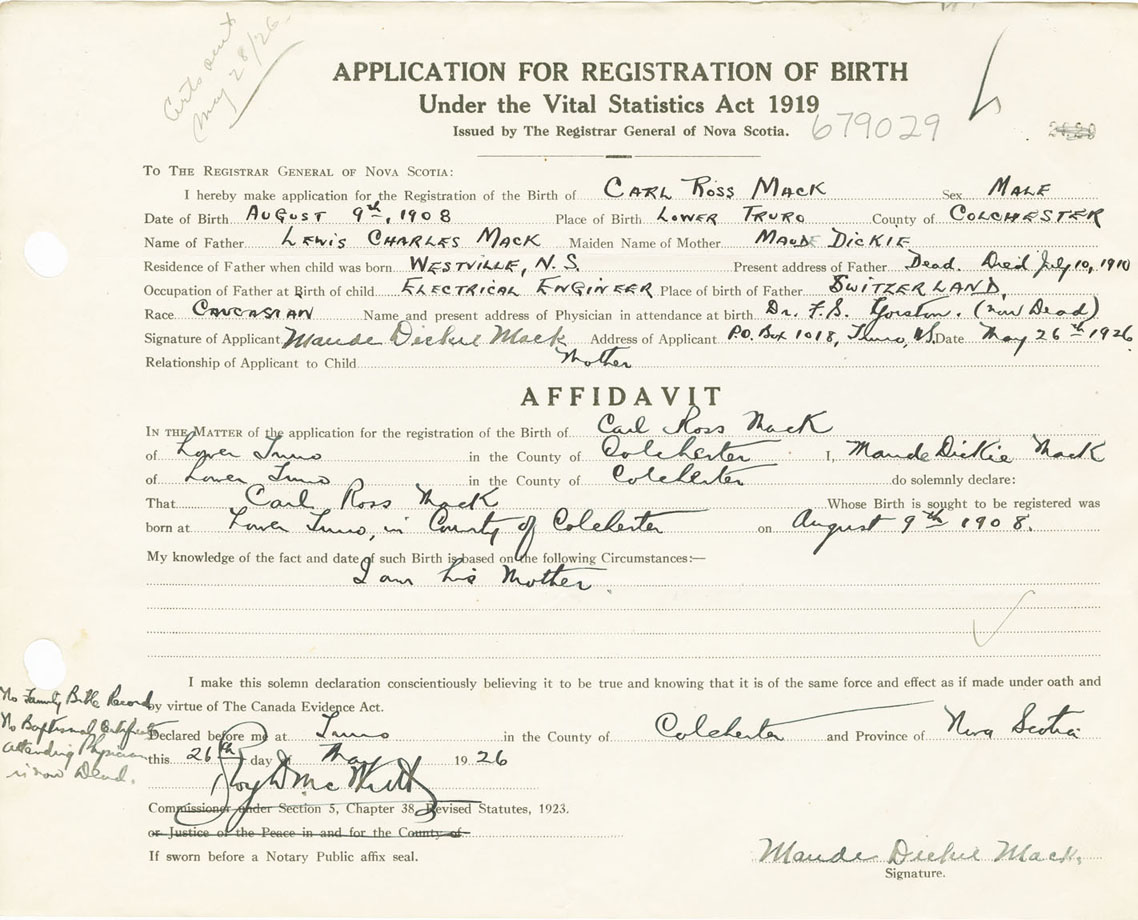 Certs sent
May 28/26
APPLICATION FOR REGISTRATION OF BIRTH
Under the Vital Statistics Act 1919
Issued by The Registrar General of Nova Scotia.
679029
TO THE REGISTRAR GENERAL OF NOVA SCOTIA:
I hereby make application for the Registration of the Birth of CARL ROSS MACK Sex MALE
Date of Birth AUGUST 9th, 1908 Place of Birth LOWER TRURO County of COLCHESTER
Name of Father LEWIS CHARLES MACK Maiden Name of Mother MAUDE DICKIE
Residence of Father when child was born WESTVILLE, N.S. Present address of Father Dead. Died July 10, 1910
Occupation of Father at Birth of child ELECTRICAL ENGINEER Place of birth of Father SWITZERLAND,
Race CAUCASIAN Name and present address of Physician in attendance at birth Dr. F.S. Yorston. (now Dead)
Signature of Applicant Maude Dickie Mack Address of Applicant P.O. Box 1018, Truro, N.S. Date May 26th 1926.
Relationship of Applicant to Child Mother
AFFIDAVIT
IN THE MATTER of the application for the registration of the Birth of Carl Ross Mack
of Lower Truro in the County of Colchester I, Maude Dickie Mack
of Lower Truro in the County of Colchester do solemnly declare:
That Carl Ross Mack Whose Birth is sought to be registered was
born at Lower Truro, in County of Colchester on August 9th 1908.
My knowledge of the fact and date of such Birth is based on the following Circumstances:—
I am his Mother.
I make this solemn declaration conscientiously believing it to be true and knowing that it is of the same force and effect as if made under oath and
by virtue of The Canada Evidence Act.
No Family Bible Record
No Baptismal Certificate
attending Physician
is now Dead.
Declared before me at Truro in the County of Colchester and Province of Nova Scotia
this 26th day of May 1926
Roy D Mc
Commissioner under Section 5, Chapter 38, Revised Statutes, 1923.
or Justice of the Peace in and for the County of
If sworn before a Notary Public affix seal.
Maude Dickie Mack.
Signature.